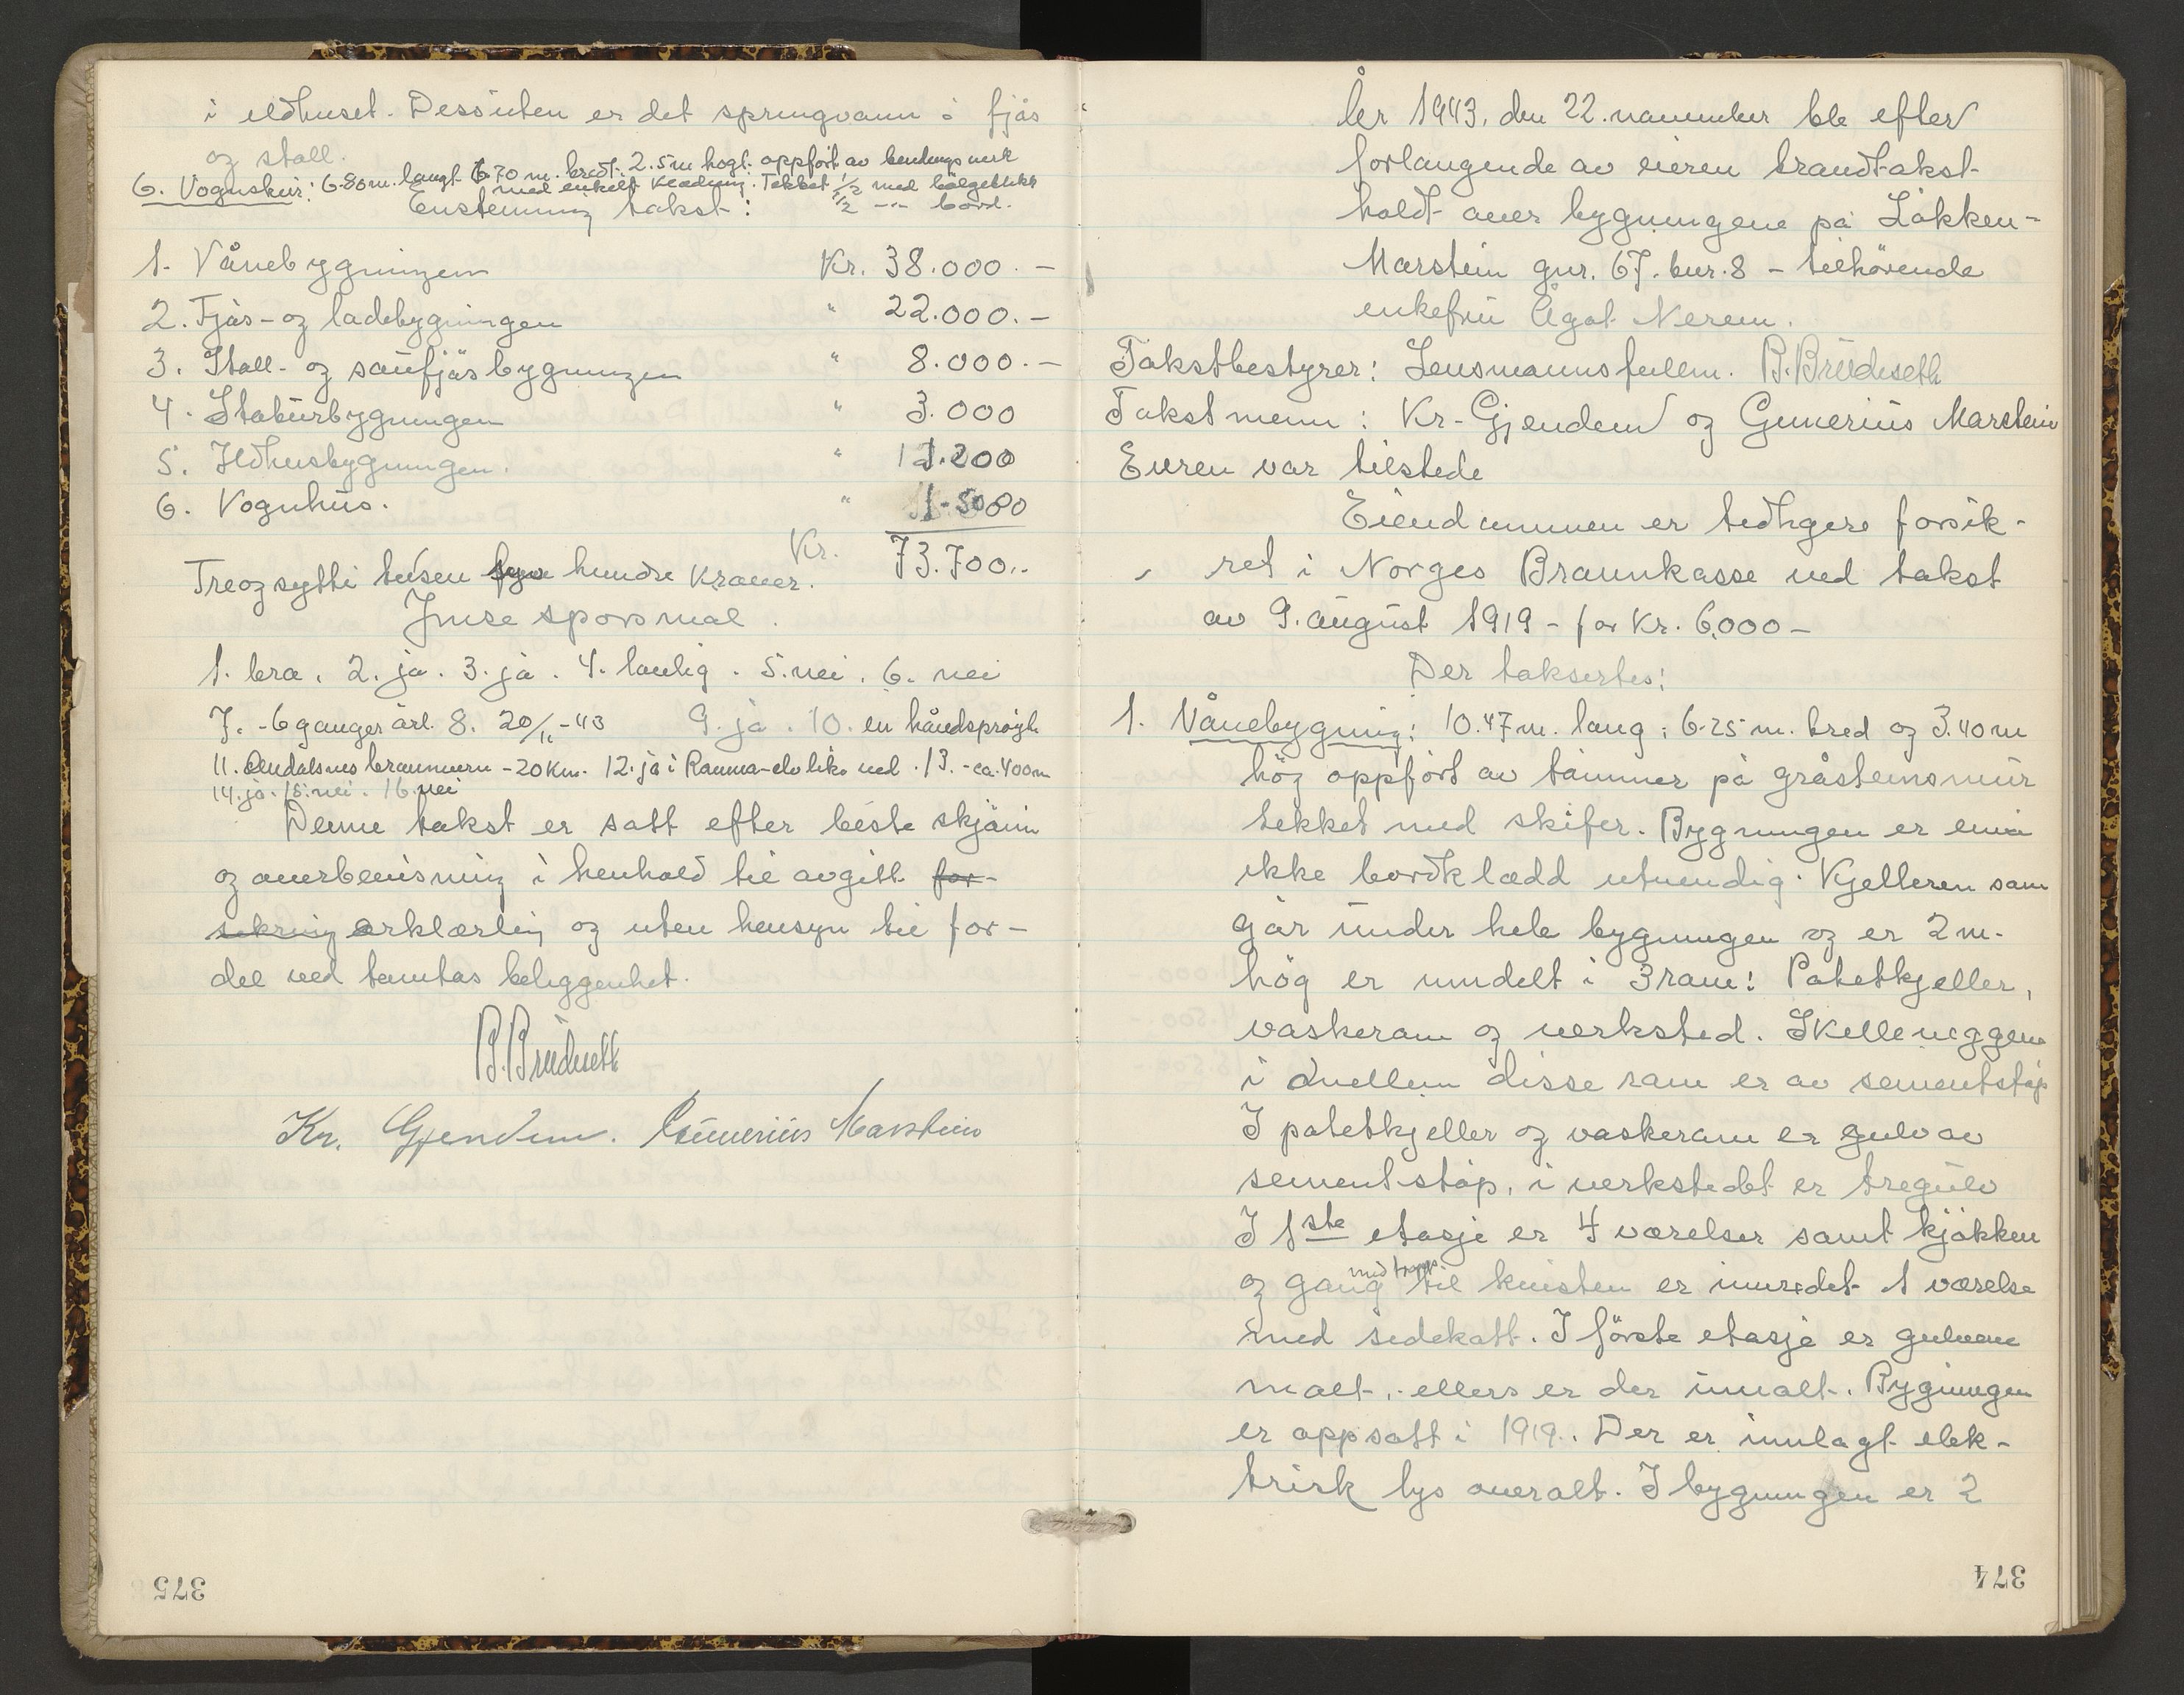 i eldhuset. Dessuten er det springvann i fjös
og stall.
6. Vognskur: 6.80 m. langt 6.70 m. bredt. 2.5 m högt. oppfört av bendingsverk
med enkelt kledning. Tekket 1/2 med bölgeblikk
1/2 -"- bord.
Enstemmig takst:
1. Vånebygningen Kr. 38.000.-
2. Fjös- og ladebygningen " 22.000.-
3. Stall- og saufjösbygningen " 8.000.-
4. Stabursbygningen " 3.000
5. Ildhusbygningen. " 1.200
6. Vognhus. " 1.500
Kr. 73.700..
Treogsytti tusen syv hundre kroner.
Imse sporsmål.
1. bra. 2. ja. 3. ja. 4. lovlig. 5. nei. 6. nei
7. -6 ganger årl. 8. 20/11-43 9. ja. 10. en håndsprøyte
11. Åndalsnes brannvern -20 km. 12. ja i Rauma-elv like ved. 13. -ca. 400 m
14. ja. 15. nei. 16. nei
Denne takst er satt efter beste skjönn
og overbevisning i henhold til avgitt for-
sikring erklæring og uten hensyn til for-
del ved tomtas beliggenhet.
B. Brüdeseth
Kr. Gjendem. Gunerius Marstein
375
År 1943, den 22. november ble efter
forlangende av eieren branntakst
holdt over bygningene på Lökken-
Marstein gnr. 67. bnr. 8 - tilhörende
enkefru Ågot Nerem.
Takstbestyrer: Lensmannsfullm. B. Brüdeseth
Takstmenn: Kr. Gjendem og Gunerius Marstein
Eieren var tilstede
Eiendommen er tidligere forsik-
ret i Norges Brannkasse ved takst
av 9. august 1919 - for Kr. 6.000-
Der taksertes:
1. Vånebygning: 10.47 m. lang, 6.25 m. bred og 3.40 m
hög oppfört av tömmer på gråsteinsmur
tekket med skifer. Bygningen er ennu
ikke bordklædd utvendig. Kjelleren som
går under hele bygningen og er 2 m.
hög er inndelt i 3 rom: Potetkjeller,
vaskerom og verksted. Skilleveggene
i mellem disse rom er av sementstöp
I potetkjeller og vaskerom er gulv av
sementstöp, i verkstedet er tregulv
I 1ste etasje er 4 værelser samt kjökken
og gang med trapp til kvisten er innredet 1 værelse
med sidekott. I förste etasje er gulvene
malt, ellers er der umalt. Bygningen
er oppsatt i 1919. Der er innlagt elek-
trisk lys overalt. I bygningen er 2
374